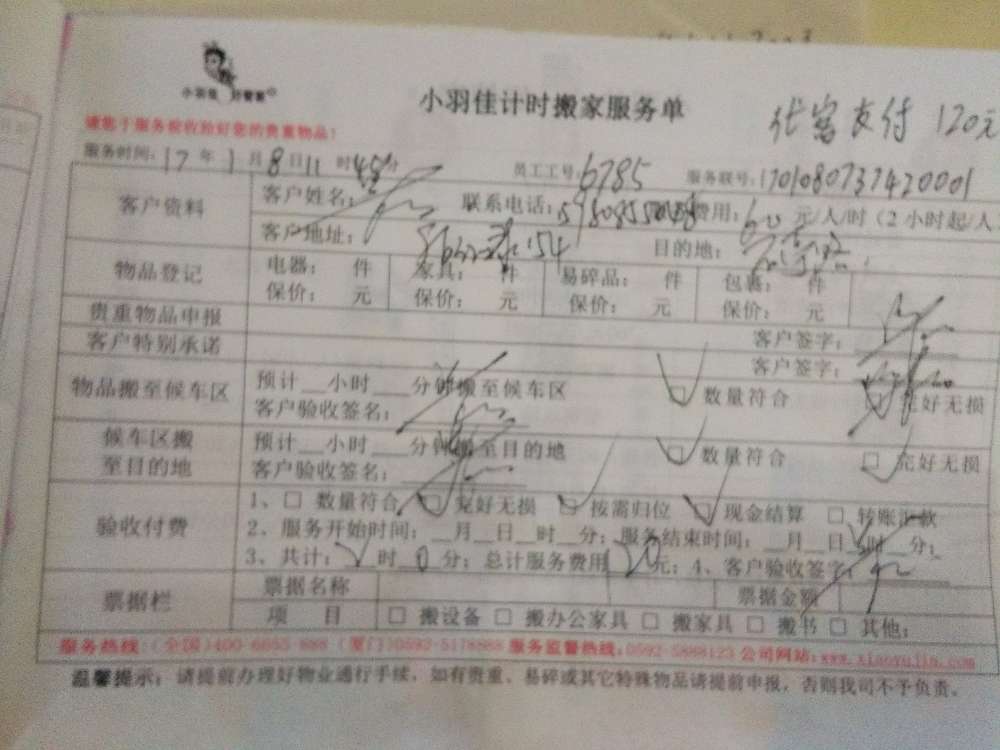 小羽佳 好管家
小羽佳计时搬家服务单
代客支付 120元
请您于服务前收拾好您的贵重物品!
服务时间:17年1月8日11时48分 员工工号:6785 服务联号:1701080737420001
客户资料 客户姓名: 联系电话: 费用:60元/人/时(2小时起/人
客户地址: 目的地:
物品登记 电器: 件 家具: 件 易碎品: 件 包裹: 件
保价: 元 保价: 元 保价: 元 保价: 元
贵重物品申报 客户签字:
客户特别承诺 客户签字:
物品搬至候车区 预计__小时___分钟搬至候车区 ☑ 数量符合 ☑ 完好无损
客户验收签名:
候车区搬至目的地 预计__小时___分钟搬至目的地 ☑ 数量符合 ☑ 完好无损
客户验收签名:
验收付费 1、☐ 数量符合 ☑ 完好无损 ☑ 按需归位 ☑ 现金结算 ☐ 转账汇款
2、服务开始时间:__月__日__时__分;服务结束时间:__月__日__时__分;
3、共计: 时0分;总计服务费用120元;4、客户验收签字:
票据栏 票据名称 票据金额
项 目 ☐ 搬设备 ☐ 搬办公家具 ☐ 搬家具 ☐ 搬书 ☐ 其他:
服务热线:(全国)400-6055-888 (厦门)0592-5178868 服务监督热线:0592-5888123 公司网站:www.xiaoyujia.com
温馨提示:请提前办理好物业通行手续,如有贵重、易碎或其它特殊物品请提前申报,否则我司不予负责。